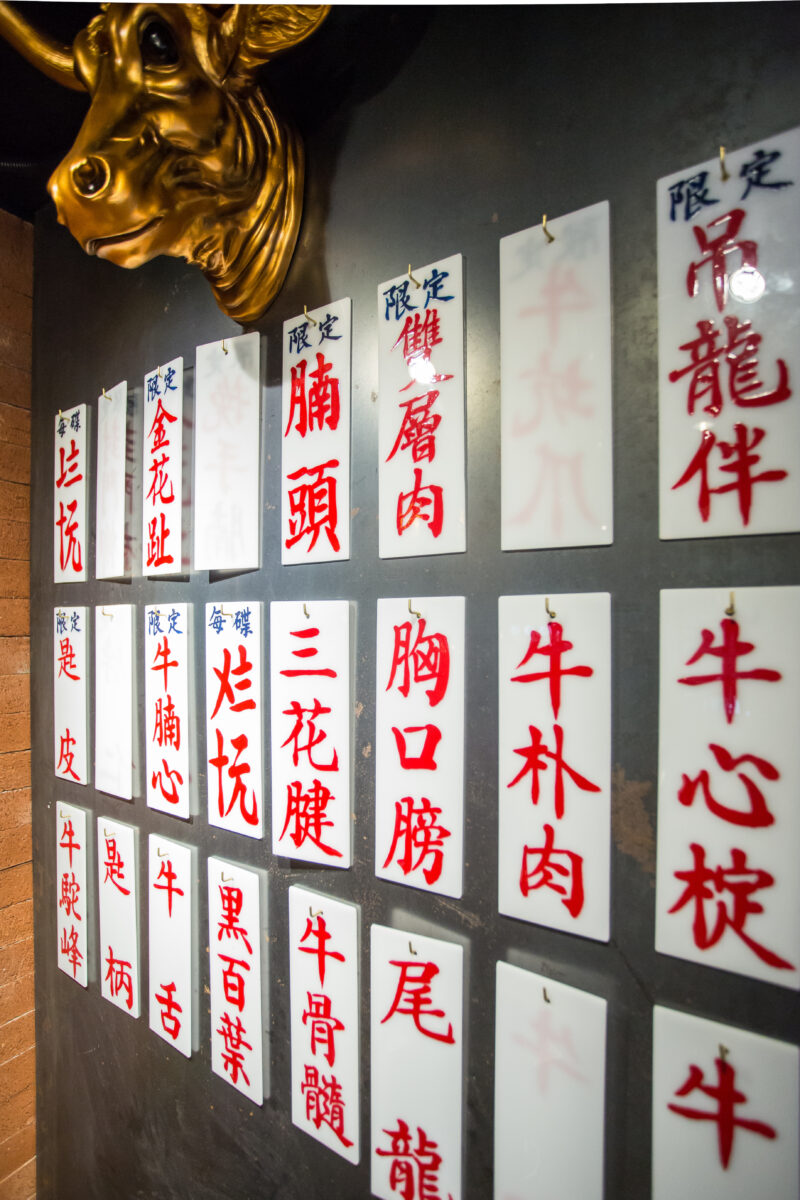 每碟
限定
金花趾
限定
腩頭
限定
雙層肉
限定
吊龍伴
限定
匙皮
限定
牛腩心
每碟
三花腱
胸口膀
牛朴肉
牛心椗
牛駝峰
匙柄
牛舌
黑百葉
牛骨髓
尾龍
牛